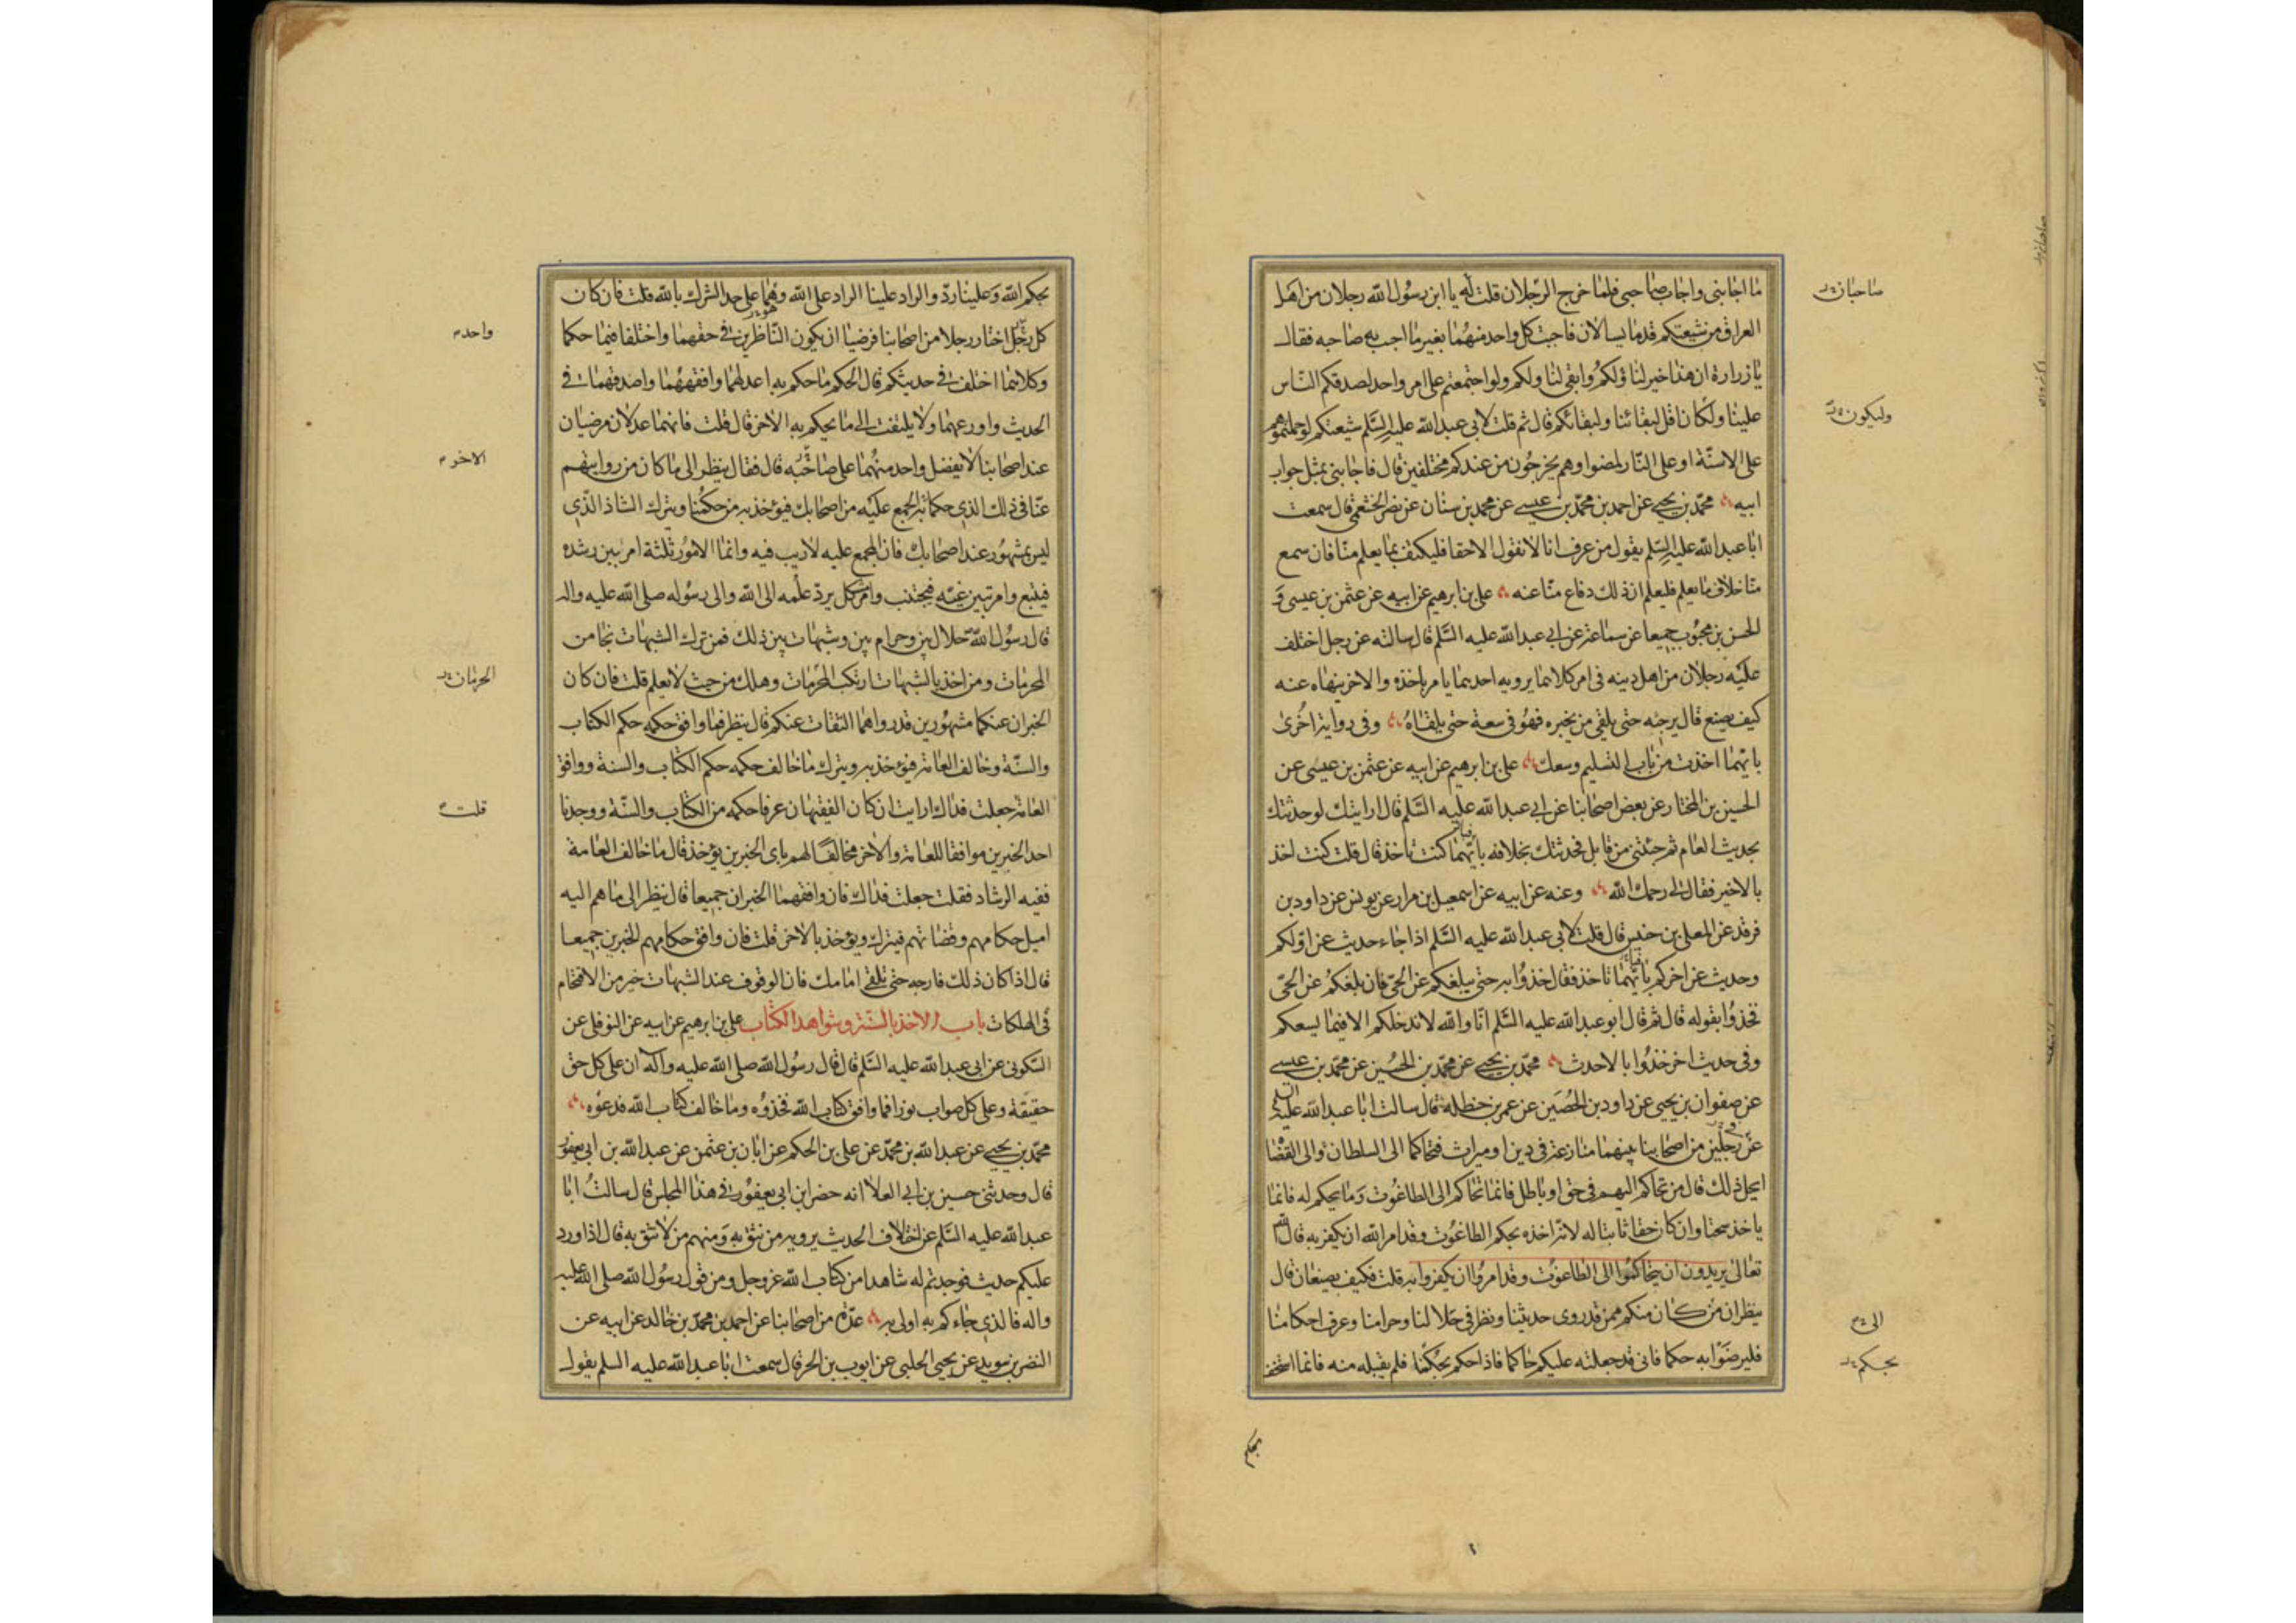 ما اجابنى واجاب صاحبى فلما خرج الرجلان قلت له يا ابن رسول الله رجلان من اهل
العراق من شيعتكم قدما يسالان فاجبت كل واحد منهما بغير ما اجبت به صاحبه فقال
يا زرارة ان هذا خير لنا ولكم وابقى لنا ولكم ولو اجتمعتم على امر واحد لصدقكم الناس
علينا ولكان اقل لبقائنا ولبقائكم قال ثم قلت لابى عبد الله عليه السلم شيعتكم لو حملتموهم
على الاسنة او على النار لمضوا وهم يخرجون من عندكم مختلفين قال فاجابنى بمثل جواب
ابيه محمد بن يحيى عن احمد بن محمد بن عيسى عن محمد بن سنان عن نصر الخثعمى قال سمعت
ابا عبد الله عليه السلم يقول من عرف انا لا نقول الا حقا فليكتف بما يعلم منا فان سمع
منا خلاف ما يعلم فليعلم ان ذلك دفاع منا عنه على بن ابرهيم عن ابيه عن عثمن بن عيسى و
الحسن بن محبوب جميعا عن سماعة عن ابى عبد الله عليه السلم قال سالته عن رجل اختلف
عليه رجلان من اهل دينه فى امر كلاهما يرويه احدهما يامر باخذه والاخر ينهاه عنه
كيف يصنع قال يرجئه حتى يلقى من يخبره فهو فى سعة حتى يلقاه وفى رواية اخرى
بايهما اخذت من باب التسليم وسعك على بن ابرهيم عن ابيه عن عثمن بن عيسى عن
الحسين بن المختار عن بعض اصحابنا عن ابى عبد الله عليه السلم قال ارايتك لو حدثتك
بحديث العام ثم جئتنى من قابل فحدثتك بخلافه بايهما كنت تاخذ قال قلت كنت اخذ
بالاخير فقال لى رحمك الله وعنه عن ابيه عن اسمعيل بن مرار عن يونس عن داود بن
فرقد عن المعلى بن خنيس قال قلت لابى عبد الله عليه السلم اذا جاء حديث عن اولكم
وحديث عن اخركم بايهما ناخذ فقال خذوا به حتى يبلغكم عن الحى فان بلغكم عن الحى
فخذوا بقوله قال ثم قال ابو عبد الله عليه السلم انا والله لا ندخلكم الا فيما يسعكم
وفى حديث اخر خذوا بالاحدث محمد بن يحيى عن محمد بن الحسين عن محمد بن عيسى
عن صفوان بن يحيى عن داود بن الحصين عن عمر بن حنظلة قال سالت ابا عبد الله عليه السلم
عن رجلين من اصحابنا بينهما منازعة فى دين او ميراث فتحاكما الى السلطان والى القضاة
ايحل ذلك قال من تحاكم اليهم فى حق او باطل فانما تحاكم الى الطاغوت وما يحكم له فانما
ياخذ سحتا وان كان حقا ثابتا له لانه اخذه بحكم الطاغوت وقد امر الله ان يكفر به قال الله
تعالى يريدون ان يتحاكموا الى الطاغوت وقد امروا ان يكفروا به قلت فكيف يصنعان قال
ينظران من كان منكم ممن قد روى حديثنا ونظر فى حلالنا وحرامنا وعرف احكامنا
فليرضوا به حكما فانى قد جعلته عليكم حاكما فاذا حكم بحكمنا فلم يقبله منه فانما استخف
صاحبان
وليكون
الى
بحكم
بحكم
بحكم الله وعلينا رد والراد علينا الراد على الله وهما على حد الشرك بالله قلت فان كان
كل رجل اختار رجلا من اصحابنا فرضيا ان يكون الناظرين فى حقهما واختلفا فيما حكما
وكلاهما اختلف فى حديثكم قال الحكم ما حكم به اعدلهما وافقههما واصدقهما فى
الحديث واورعهما ولا يلتفت الى ما يحكم به الاخر قال قلت فانهما عدلان مرضيان
عند اصحابنا لا يفضل واحد منهما على صاحبه قال فقال ينظر الى ما كان من روايتهم
عنا فى ذلك الذى حكما به المجمع عليه من اصحابك فيؤخذ به من حكمنا ويترك الشاذ الذى
ليس بمشهور عند اصحابك فان المجمع عليه لا ريب فيه وانما الامور ثلثة امر بين رشده
فيتبع وامر بين غيه فيجتنب وامر مشكل يرد علمه الى الله والى رسوله صلى الله عليه واله
قال رسول الله حلال بين وحرام بين وشبهات بين ذلك فمن ترك الشبهات نجا من
المحرمات ومن اخذ بالشبهات ارتكب المحرمات وهلك من حيث لا يعلم قلت فان كان
الخبران عنكما مشهورين قد رواهما الثقات عنكم قال ينظر فما وافق حكمه حكم الكتاب
والسنة وخالف العامة فيؤخذ به ويترك ما خالف حكمه حكم الكتاب والسنة ووافق
العامة جعلت فداك ارايت ان كان الفقيهان عرفا حكمه من الكتاب والسنة ووجدنا
احد الخبرين موافقا للعامة والاخر مخالفا لهم باى الخبرين يؤخذ قال ما خالف العامة
ففيه الرشاد فقلت جعلت فداك فان وافقهما الخبران جميعا قال ينظر الى ما هم اليه
اميل حكامهم وقضاتهم فيترك ويؤخذ بالاخر قلت فان وافق حكامهم الخبرين جميعا
قال اذا كان ذلك فارجه حتى تلقى امامك فان الوقوف عند الشبهات خير من الاقتحام
فى الهلكات باب الاخذ بالسنة وشواهد الكتاب على بن ابرهيم عن ابيه عن النوفلى عن
السكونى عن ابى عبد الله عليه السلم قال قال رسول الله صلى الله عليه واله ان على كل حق
حقيقة وعلى كل صواب نورا فما وافق كتاب الله فخذوه وما خالف كتاب الله فدعوه
محمد بن يحيى عن عبد الله بن محمد عن على بن الحكم عن ابان بن عثمن عن عبد الله بن ابى يعفور
قال وحدثنى حسين بن ابى العلا انه حضر ابن ابى يعفور فى هذا المجلس قال سالت ابا
عبد الله عليه السلم عن اختلاف الحديث يرويه من نثق به ومنهم من لا نثق به قال اذا ورد
عليكم حديث فوجدتم له شاهدا من كتاب الله عز وجل ومن قول رسول الله صلى الله عليه
واله فالذى جاءكم به اولى به عدة من اصحابنا عن احمد بن محمد بن خالد عن ابيه عن
النضر بن سويد عن يحيى الحلبى عن ايوب بن الحر قال سمعت ابا عبد الله عليه السلم يقول
واحد
الاخر
الحرمان
قلت